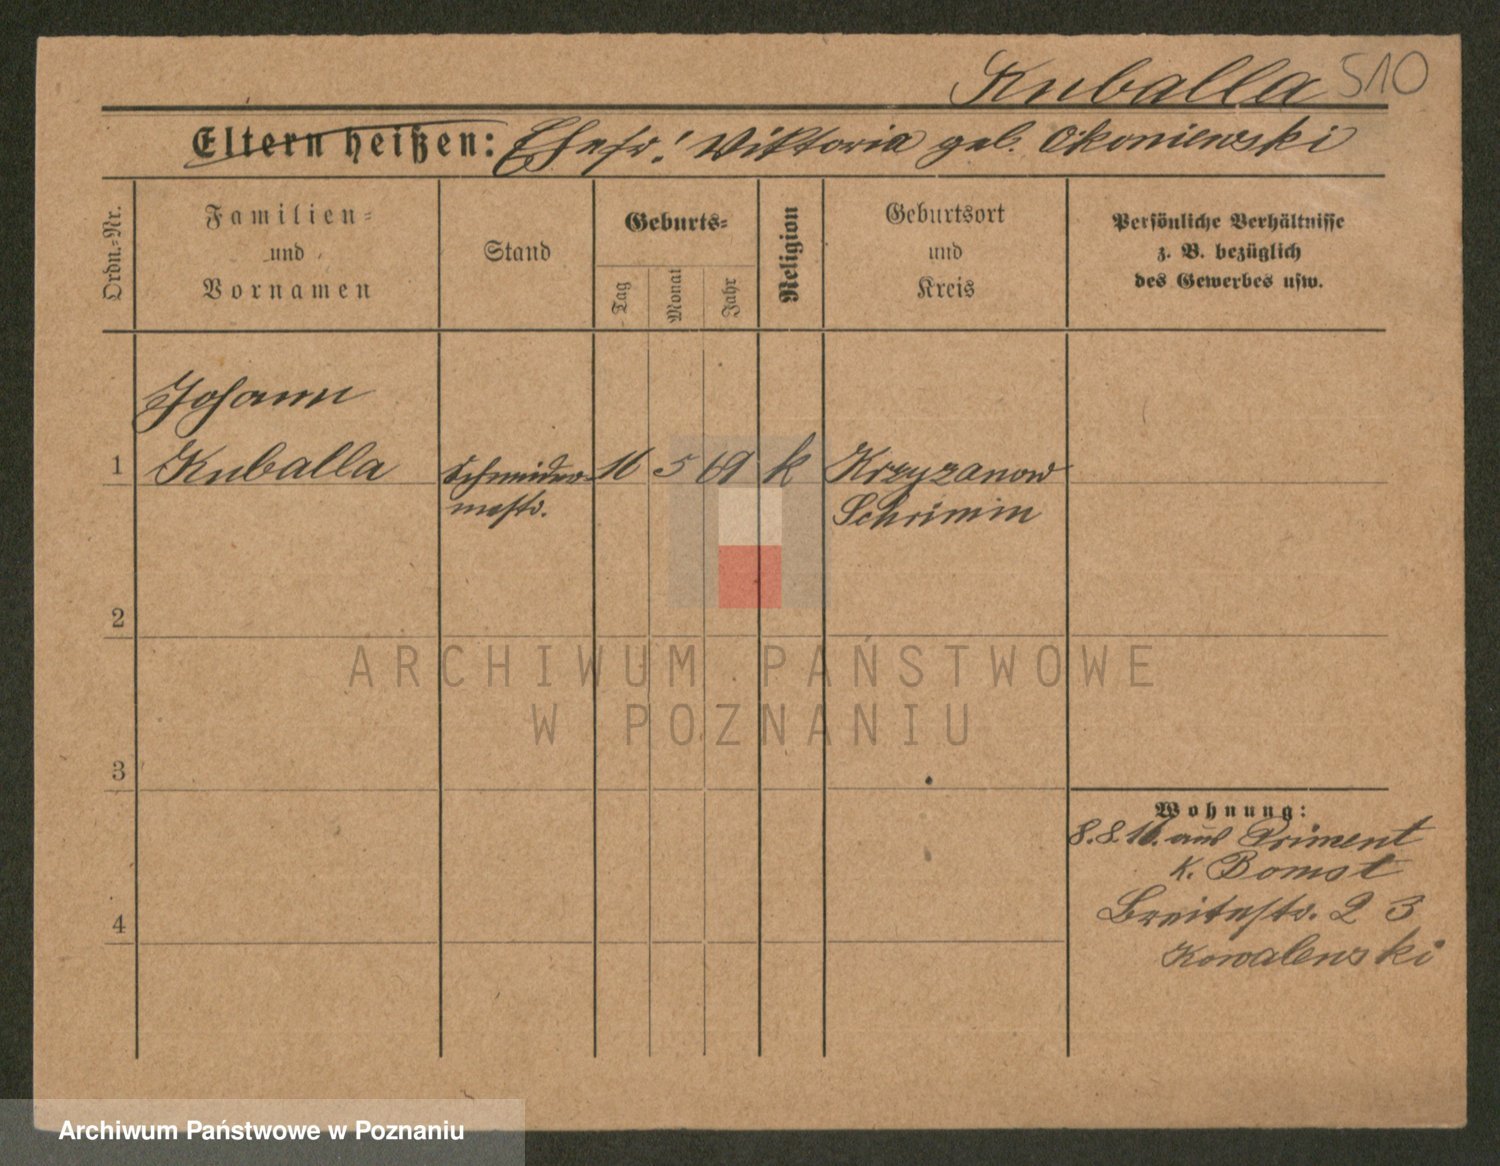 Kuballa 510
Eltern heißen: Ehefr! Viktoria geb. Okoniewski
Ordn.=Nr.
Familien=
und
Vornamen
Stand
Geburts=
Tag
Monat
Jahr
Religion
Geburtsort
und
Kreis
Persönliche Verhältnisse
z. B. bezüglich
des Gewerbes usw.
Johann
1 Kuballa Schneider= 16 5 69 k Krzyzanow
mstr. Schrimm
2
ARCHIWUM PAŃSTWOWE
W POZNANIU
3
Wohnung:
8.8.16. aus Priment
K. Bomst
4 Breitestr. 23
Kowalewski
Archiwum Państwowe w Poznaniu